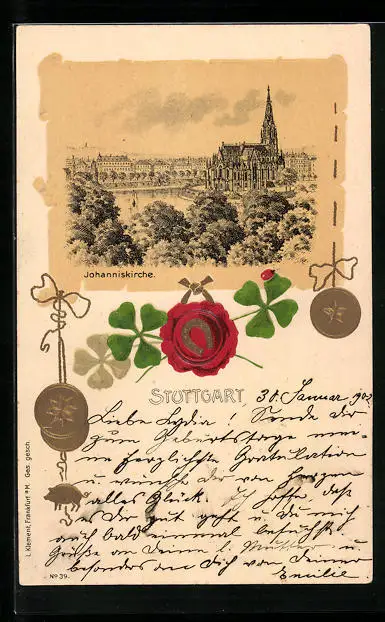 Johanniskirche.
STUTTGART 30. Januar 902
Liebe Lydia! Sende dir
zum Geburtstage mei-
ne herzlichste Gratulation
u wünsche dir von Herzen
alles Glück. Ich hoffe, daß
es Dir gut geht u. Du mich
auch bald einmal besuchst.
Grüße an Deine l. Mutter u
besonders an Dich von Deiner
Emilie
I. Klement, Frankfurt a/M. Ges. gesch.
No 39.